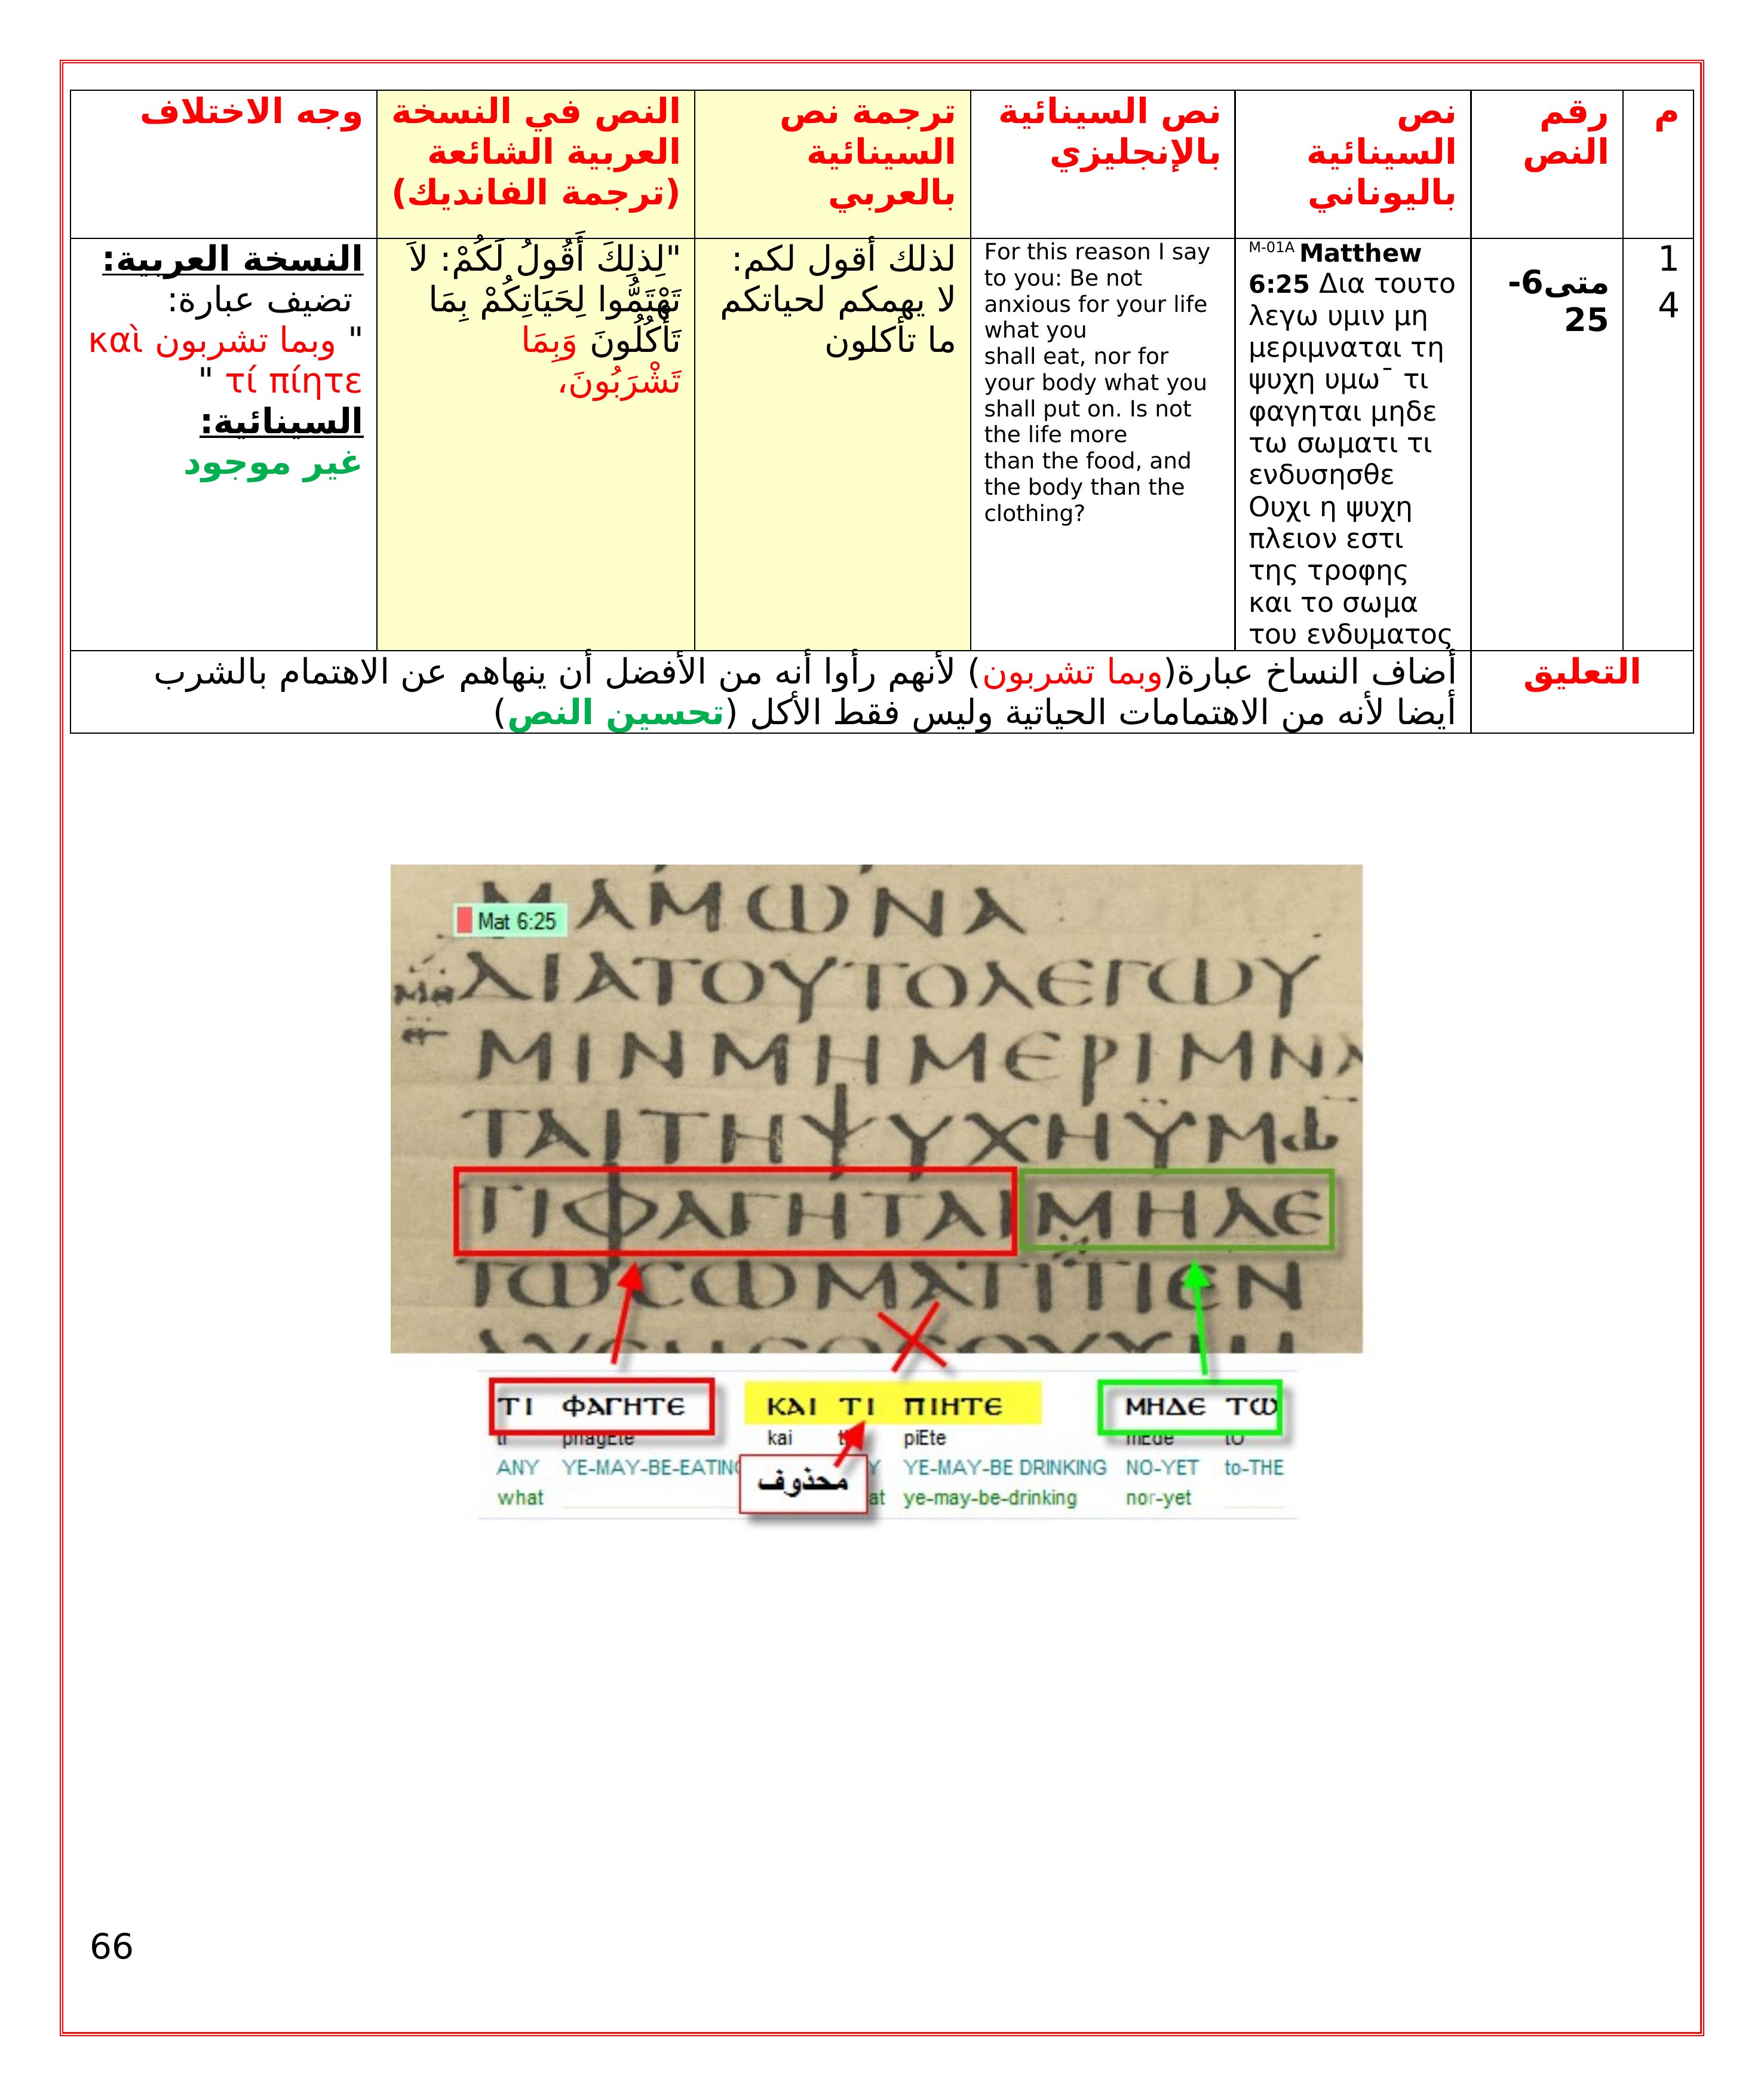 م
رقم
النص
نص
السينائية
باليوناني
نص السينائية
بالإنجليزي
ترجمة نص
السينائية
بالعربي
النص في النسخة
العربية الشائعة
(ترجمة الفانديك)
وجه الاختلاف
1
4
متى6-
25
M-01A Matthew
6:25 Δια τουτο
λεγω υμιν μη
μεριμναται τη
ψυχη υμω¯ τι
φαγηται μηδε
τω σωματι τι
ενδυσησθε
Ουχι η ψυχη
πλειον εστι
της τροφης
και το σωμα
του ενδυματος
For this reason I say
to you: Be not
anxious for your life
what you
shall eat, nor for
your body what you
shall put on. Is not
the life more
than the food, and
the body than the
clothing?
لذلك أقول لكم:
لا يهمكم لحياتكم
ما تأكلون
"لِذلِكَ أَقُولُ لَكُمْ: لاَ
تَهْتَمُّوا لِحَيَاتِكُمْ بِمَا
تَأْكُلُونَ وَبِمَا
تَشْرَبُونَ،
النسخة العربية:
تضيف عبارة:
" وبما تشربون καὶ
τί πίητε "
السينائية:
غير موجود
التعليق
أضاف النساخ عبارة(وبما تشربون) لأنهم رأوا أنه من الأفضل أن ينهاهم عن الاهتمام بالشرب
أيضا لأنه من الاهتمامات الحياتية وليس فقط الأكل (تحسين النص)
ΜΑΜΩΝΑ
Mat 6:25
ΔΙΑΤΟΥΤΟΛΕΓΩΥ
ΜΙΝΜΗΜΕΡΙΜΝΑ
ΤΑΙΤΗΨΥΧΗΫΜΩ
ΤΙΦΑΓΗΤΑΙΜΗΔΕ
ΤΩϹΩΜΑΤΙΤΙΕΝ
ΤΙ ΦΑΓΗΤΕ ΚΑΙ ΤΙ ΠΙΗΤΕ ΜΗΔΕ ΤΩ
ti phagEte kai piEte mEde tO
ANY YE-MAY-BE-EATING YE-MAY-BE DRINKING NO-YET to-THE
what ye-may-be-drinking nor-yet
محذوف
66